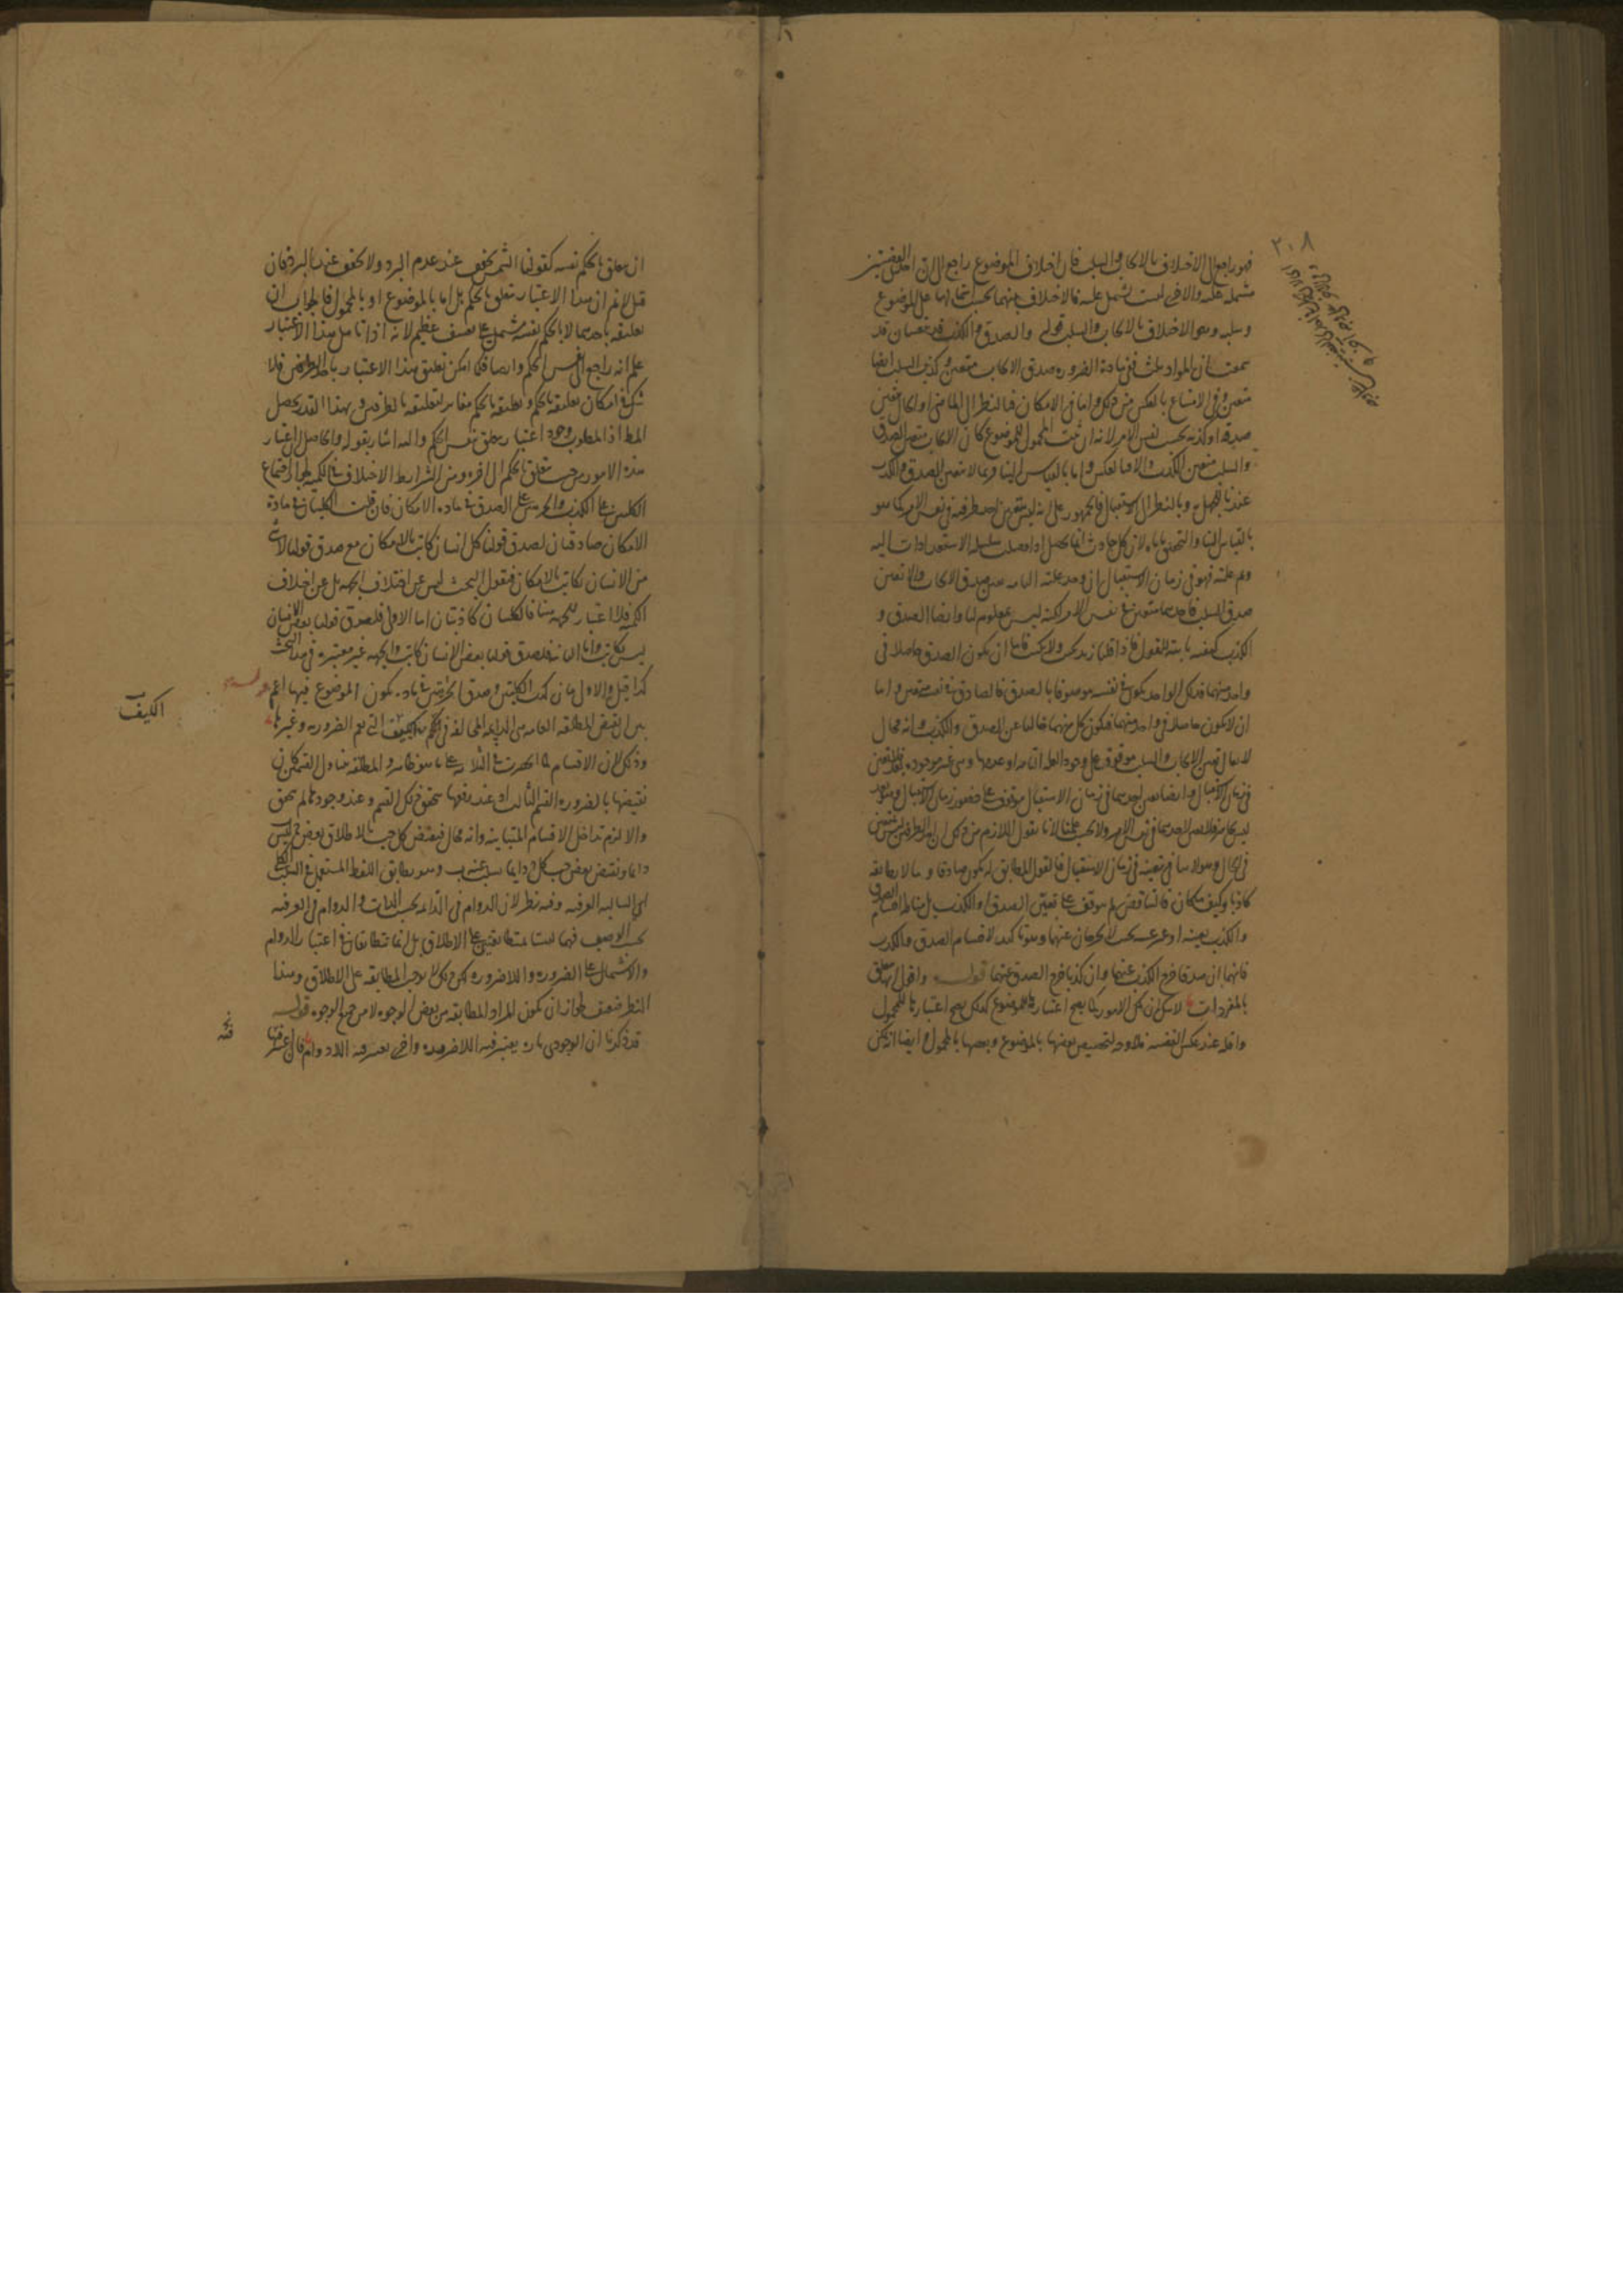 ٢٠٨
فهو راجع الى الاختلاف بالايجاب والسلب فان اختلاف الموضوع راجع الى ان احدى القضيتين
مشتملة عليه والاخرى ليست تشتمل عليه فالاختلاف بينهما بحسب اشتمالها على الموضوع
وسلبه وهو الاختلاف بالايجاب والسلب قوله والصدق والكذب قد يتعينان قد
سمعت ان المواد ثلث ففي مادة الضرورة صدق الايجاب متعين وكذب السلب ايضا
متعين وفي الامتناع بالعكس من ذلك واما في الامكان فبالنظر الى الماضي او الحال يتعين
صدقه او كذبه بحسب نفس الامر لانه ان ثبت المحمول للموضوع كان الايجاب متعين الصدق
والسلب متعين الكذب والا فبالعكس واما بالقياس الينا وربما لا يتعين الصدق والكذب
عندنا للجهل به وبالنظر الى الاستقبال فالجمهور على انه ليس يتعين احد طرفيه في نفس الامر كما هو
بالقياس الينا والتحقيق ياباه لان كل حادث انما يحصل اذا وصلت سلسلة الاستعدادات اليه
وتم علته فهو في زمان الاستقبال ان وجد علته التامة تعين صدق الايجاب والا تعين
صدق السلب فاحدهما متعين في نفس الامر لكنه ليس بمعلوم لنا وايضا الصدق و
الكذب كيفية ثابتة للقول فاذا قلنا زيد يكتب ولا يكتب فاما ان يكون الصدق حاصلا في
واحد منهما فذلك الواحد يكون في نفسه موصوفا بالصدق فالصادق في نفسه متعين واما
ان لا يكون حاصلا في واحد منهما فيكون كل منهما خاليا عن الصدق والكذب وانه محال
لا يقال تعين الايجاب والسلب موقوف على وجود العلة التامة او عدمها وهي غير موجودة فلا تتعين
في زمان الاستقبال وايضا تعين احدهما في زمان الاستقبال موقوف على حضور زمان الاستقبال وهو بعد
ليس بحاضر فلا تعين لاحدهما في نفس الامر ولا بحسب علمنا لانا نقول اللازم من ذلك ان احد الطرفين ليس بمتعين
في الحال وهو لا ينافي تعينه في زمان الاستقبال فالقول المطابق له يكون صادقا وما لا يطابقه
كاذبا وكيف ما كان فالتناقض لم يتوقف على تعين الصدق او الكذب بل مناطه اقتسام الصدق
والكذب بعينه او غير عينه بحيث لا يخرجان عنهما وهو تاكيد لاقتسام الصدق والكذب
فانهما ان صدقا خرج الكذب عنهما وان كذبا خرج الصدق عنهما قوله واقول انها تتعلق
بالمفردات لا شك ان تلك الامور كما يصح اعتبارها للموضوع كذلك يصح اعتبارها للمحمول
واقله عند عكس القضية فلا وجه لتخصيص بعضها بالموضوع وبعضها بالمحمول وايضا ان يمكن
ان يتعلق بالحكم نفسه كقولنا الشمس تجفف عند عدم البرد ولا تجفف عند البرد فان
قيل لا نم ان هذا الاعتبار متعلق بالحكم بل اما بالموضوع او بالمحمول فالجواب ان
تعليقه باحدهما لا بالحكم نفسه مشتمل على تعسف عظيم لانه اذا تامل هذا الاعتبار
علم انه راجع الى نفس الحكم وايضا فكما امكن تعليق هذا الاعتبار باحد الطرفين فلا
شك في امكان تعليقه بالحكم وتعليقه بالحكم مغاير لتعليقه بالطرفين وبهذا القدر يحصل
المط اذ المطلوب وجود اعتبار يتعلق بنفس الحكم واليه اشار بقوله والحاصل ان اعتبار
هذه الامور من حيث تتعلق بالحكم الى اخره ومن الشرايط الاختلاف في الكمية لجواز اجتماع
الكليتين على الكذب والجزئيتين على الصدق في مادة الامكان فان قلت الكليتان في مادة
الامكان صادقتان لصدق قولنا كل انسان كاتب بالامكان مع صدق قولنا لا شي
من الانسان بكاتب بالامكان فنقول البحث ليس عن اختلاف الجهة بل عن اختلاف
الكم فلا اعتبار للجهة هنا فالكليتان كاذبتان اما الاولى فلصدق قولنا بعض الانسان
ليس بكاتب واما الثانية فلصدق قولنا بعض الانسان كاتب والجهة غير معتبرة في هذا البحث
كذا قيل والاولى بيان كذب الكليتين وصدق الجزئيتين في مادة يكون الموضوع فيها اعم قوله
بين ان نقيض المطلقة العامة هي الدايمة المخالفة في الكم والكيف التي تعم الضرورية وغيرها
الكيف
وذلك لان الاقسام لما انحصرت في الثلاثة على ما هو ظاهر والمطلقة تتناول القسمين كان
نقيضها بالضرورة القسم الثالث اذ عند رفعها تحقق ذلك القسم وعند وجودها لم يتحقق
والا لزم تداخل الاقسام المتباينة وانه محال فنقيض كل ج ب بالاطلاق بعض ج ليس ب
دايما ونقيض بعض ج ب كل ج دايما يسلب عنه ب وهو يطابق اللفظ المستعمل في السلب الكلي
اي السالبة العرفية وفيه نظر لان الدوام في الدائمة بحسب الذات والدوام في العرفية
بحسب الوصف فهما ليستا متطابقتين على الاطلاق بل انما تتطابقان في اعتبار الدوام
والاشتمال على الضرورة واللاضرورة لكن ذلك لا يوجب المطابقة على الاطلاق وهذا
النظر ضعيف لجواز ان يكون المراد المطابقة من بعض الوجوه لا من جميع الوجوه قوله
قد ذكرنا ان الوجودي تارة يعتبر فيه اللاضرورة واخرى يعتبر فيه اللادوام